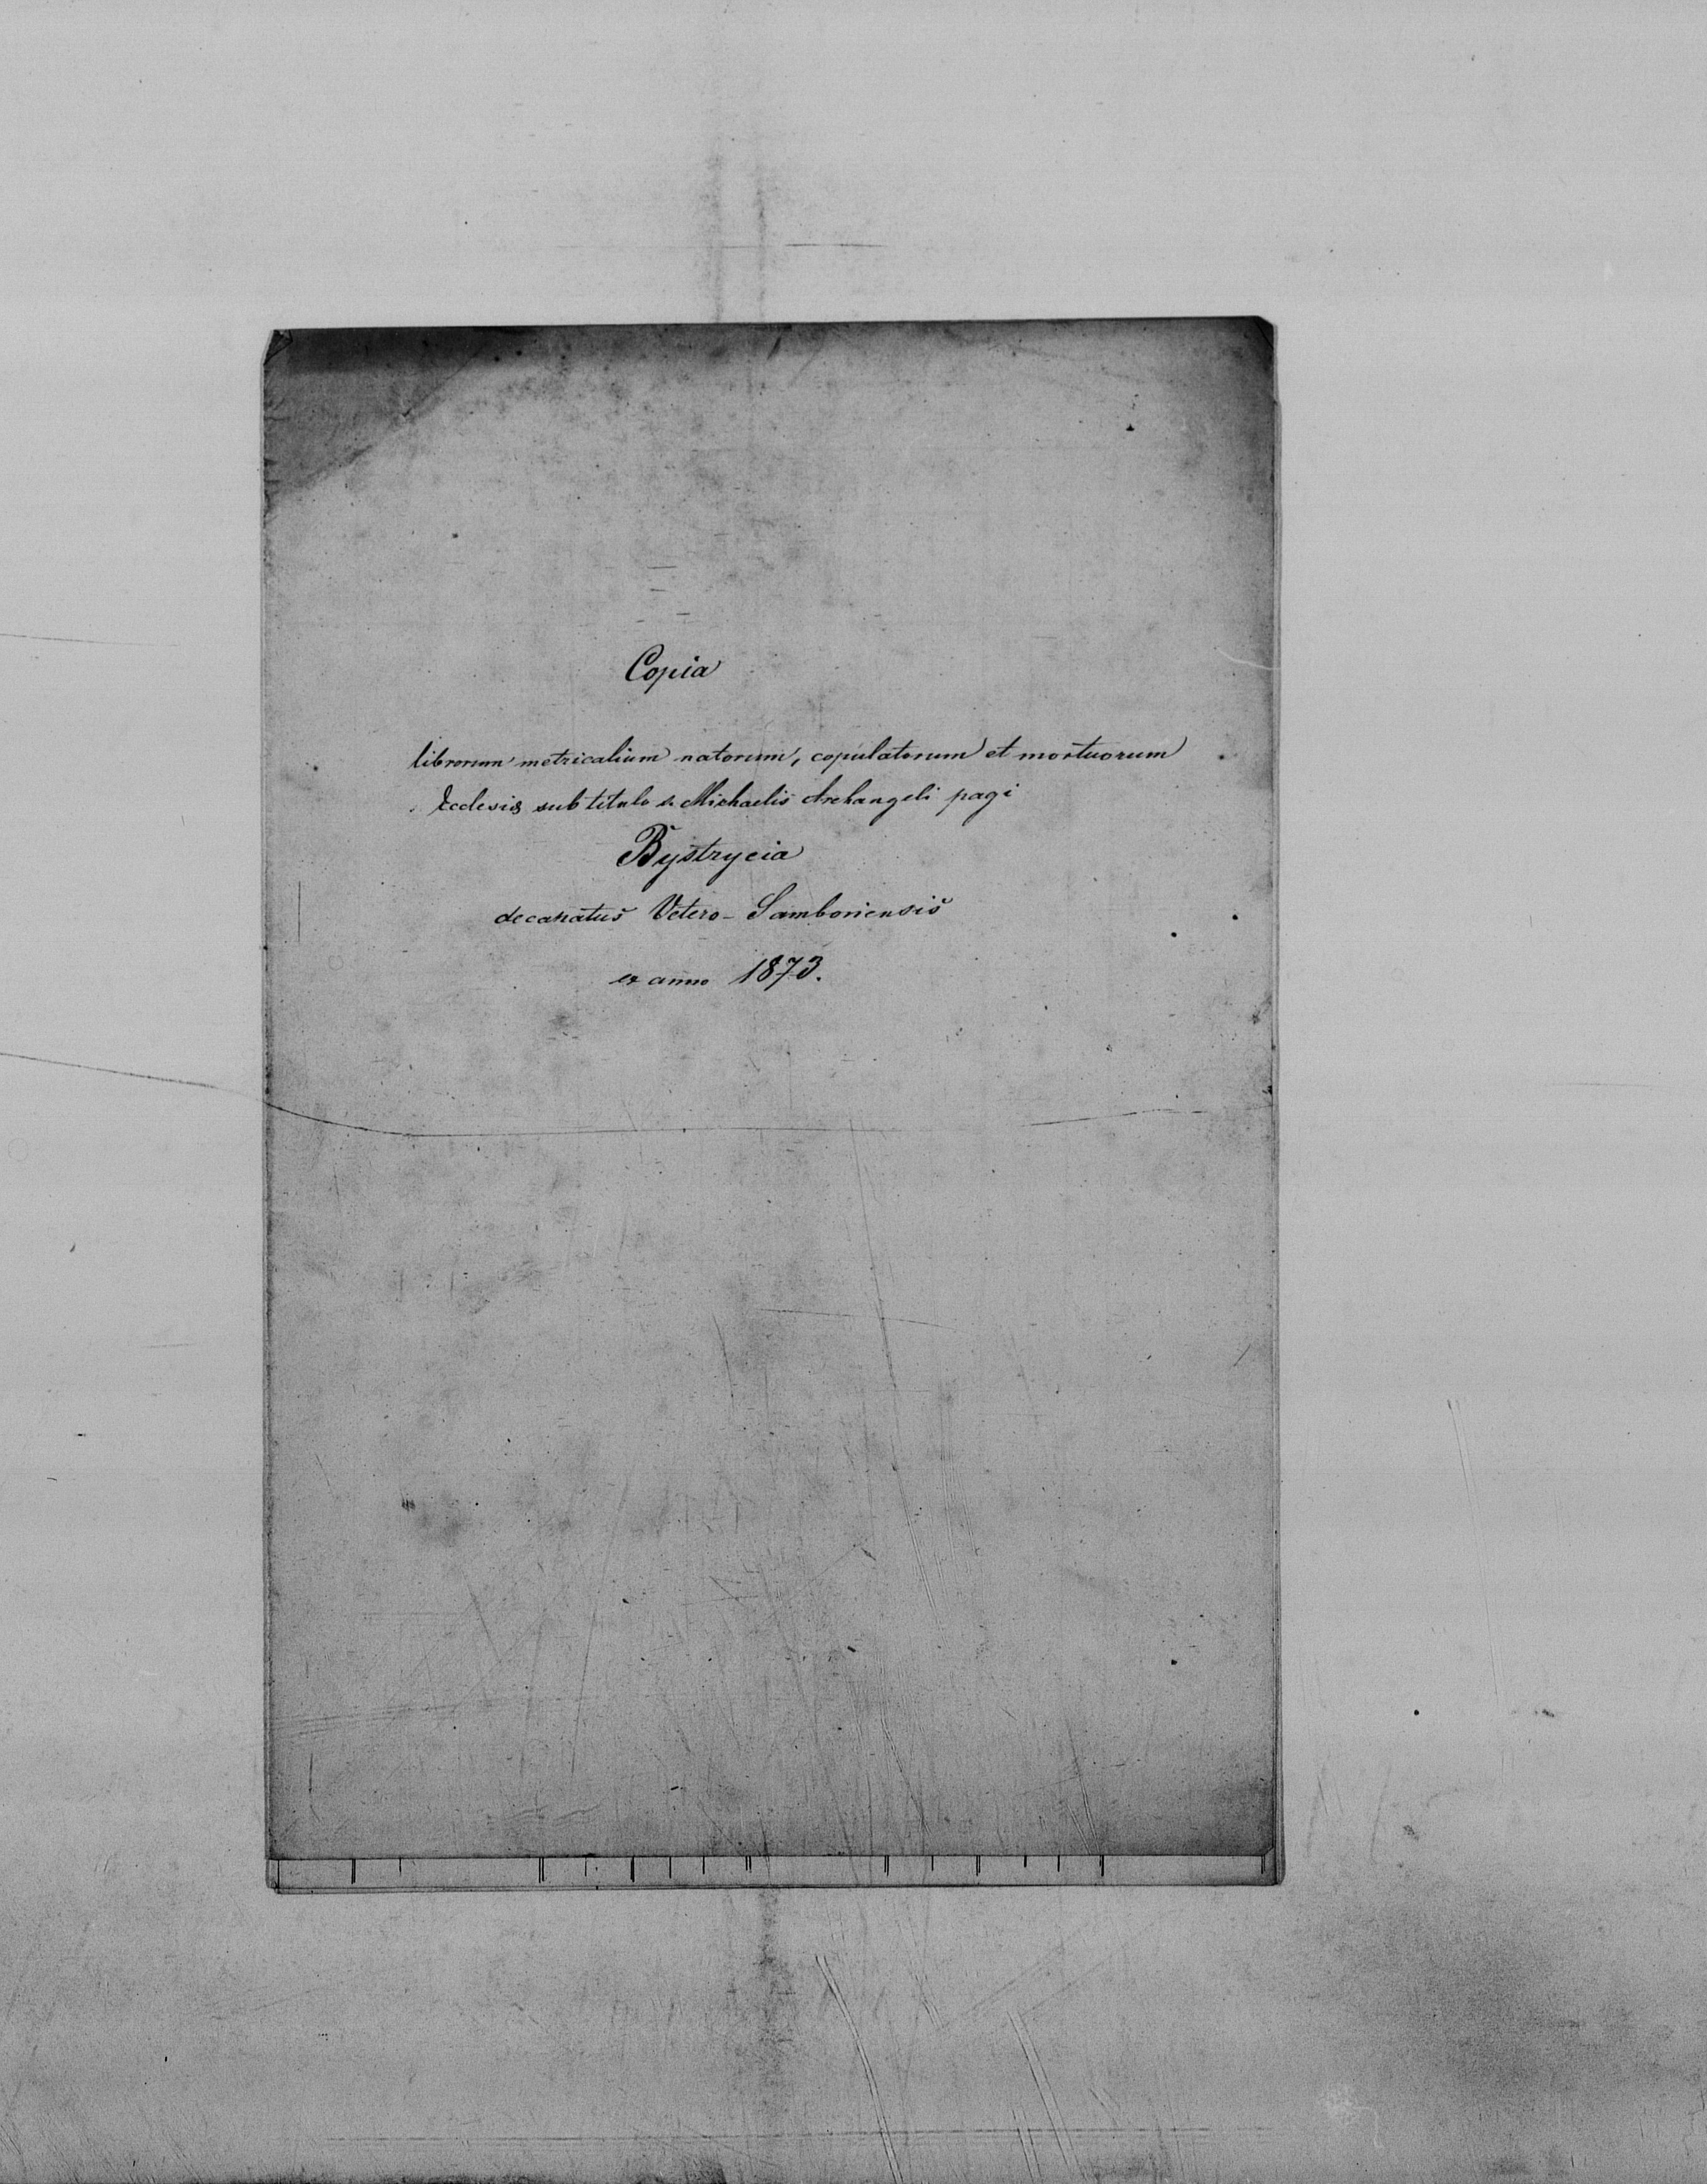 Copia
librorum metricalium natorum, copulatorum et mortuorum
Ecclesiæ sub titulo s. Michaelis Archangeli pagi
Bystrycia
decanatus Vetero-Samboriensis
ex anno 1873.